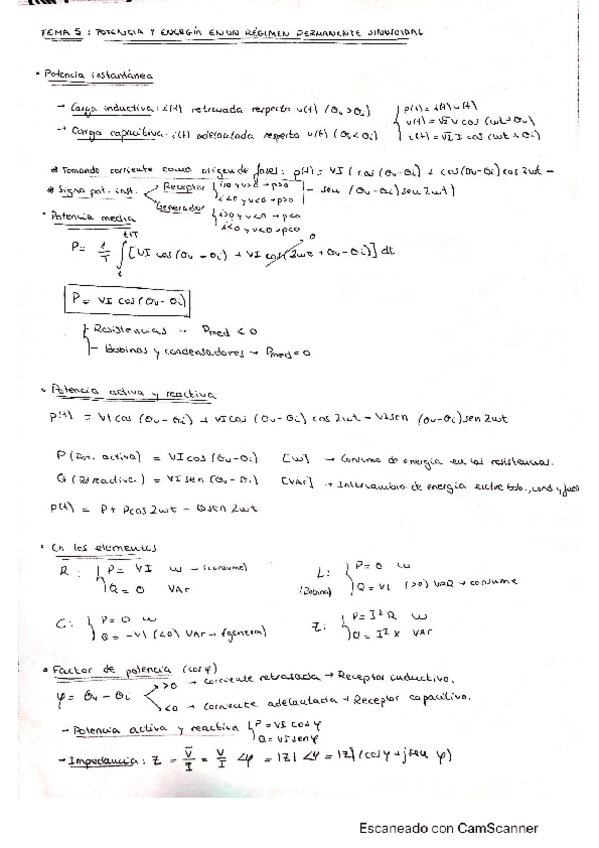 TEMA 5: POTENCIA Y ENERGÍA EN UN RÉGIMEN PERMANENTE SINUSOIDAL
• Potencia instantánea
- Carga inductiva: i(t) retrasada respecto u(t) (θv>θi) { p(t) = i(t) u(t)
- Carga capacitiva: i(t) adelantada respecto u(t) (θv<θi) { u(t) = √2 V cos (wt+θv)
i(t) = √2 I cos (wt+θi)
* Tomando corriente como origen de fases: p(t) = VI (cos (θv-θi) + cos(θv-θi) cos 2wt -
- sen (θv-θi) sen 2wt)
* Signo pot. inst. Receptor { i>0 y v>0 → p>0
i<0 y v<0 → p>0
Generador { i>0 y v<0 → p<0
i<0 y v>0 → p<0
• Potencia media
P = 1/T ∫ t t+T [VI cos (θv - θi) + VI cos(2wt + θv-θi)] dt 0
P = VI cos(θv-θi)
{ Resistencias → Pmed < 0
- Bobinas y condensadores → Pmed = 0
• Potencia activa y reactiva
p(t) = VI cos (θv-θi) + VI cos (θv-θi) cos 2wt - VI sen (θv-θi) sen 2wt
P (Pot. activa) = VI cos (θv-θi) [W] → Consumo de energía en las resistencias.
Q (Pot. reactiva.) = VI sen (θv-θi) [VAr] → Intercambio de energía entre bob., cond y
p(t) = P + P cos 2wt - Q sen 2wt
• En los elementos
R: { P = VI W - (consume)
Q = 0 VAr
L: (Bobina) { P = 0 W
Q = VI (>0) VAR → consume
C: { P = 0 W
Q = -VI (<0) VAr → (genera)
Z: { P = I² R W
Q = I² X VAr
• Factor de potencia (cos φ)
φ = θv - θi >0 → corriente retrasada → Receptor inductivo.
<0 → corriente adelantada → Receptor capacitivo.
- Potencia activa y reactiva { P = VI cos φ
Q = VI sen φ
- Impedancia: Z = V/I = V/I ∠φ = |Z| ∠φ = |Z| (cos φ + j sen φ)
Escaneado con CamScanner